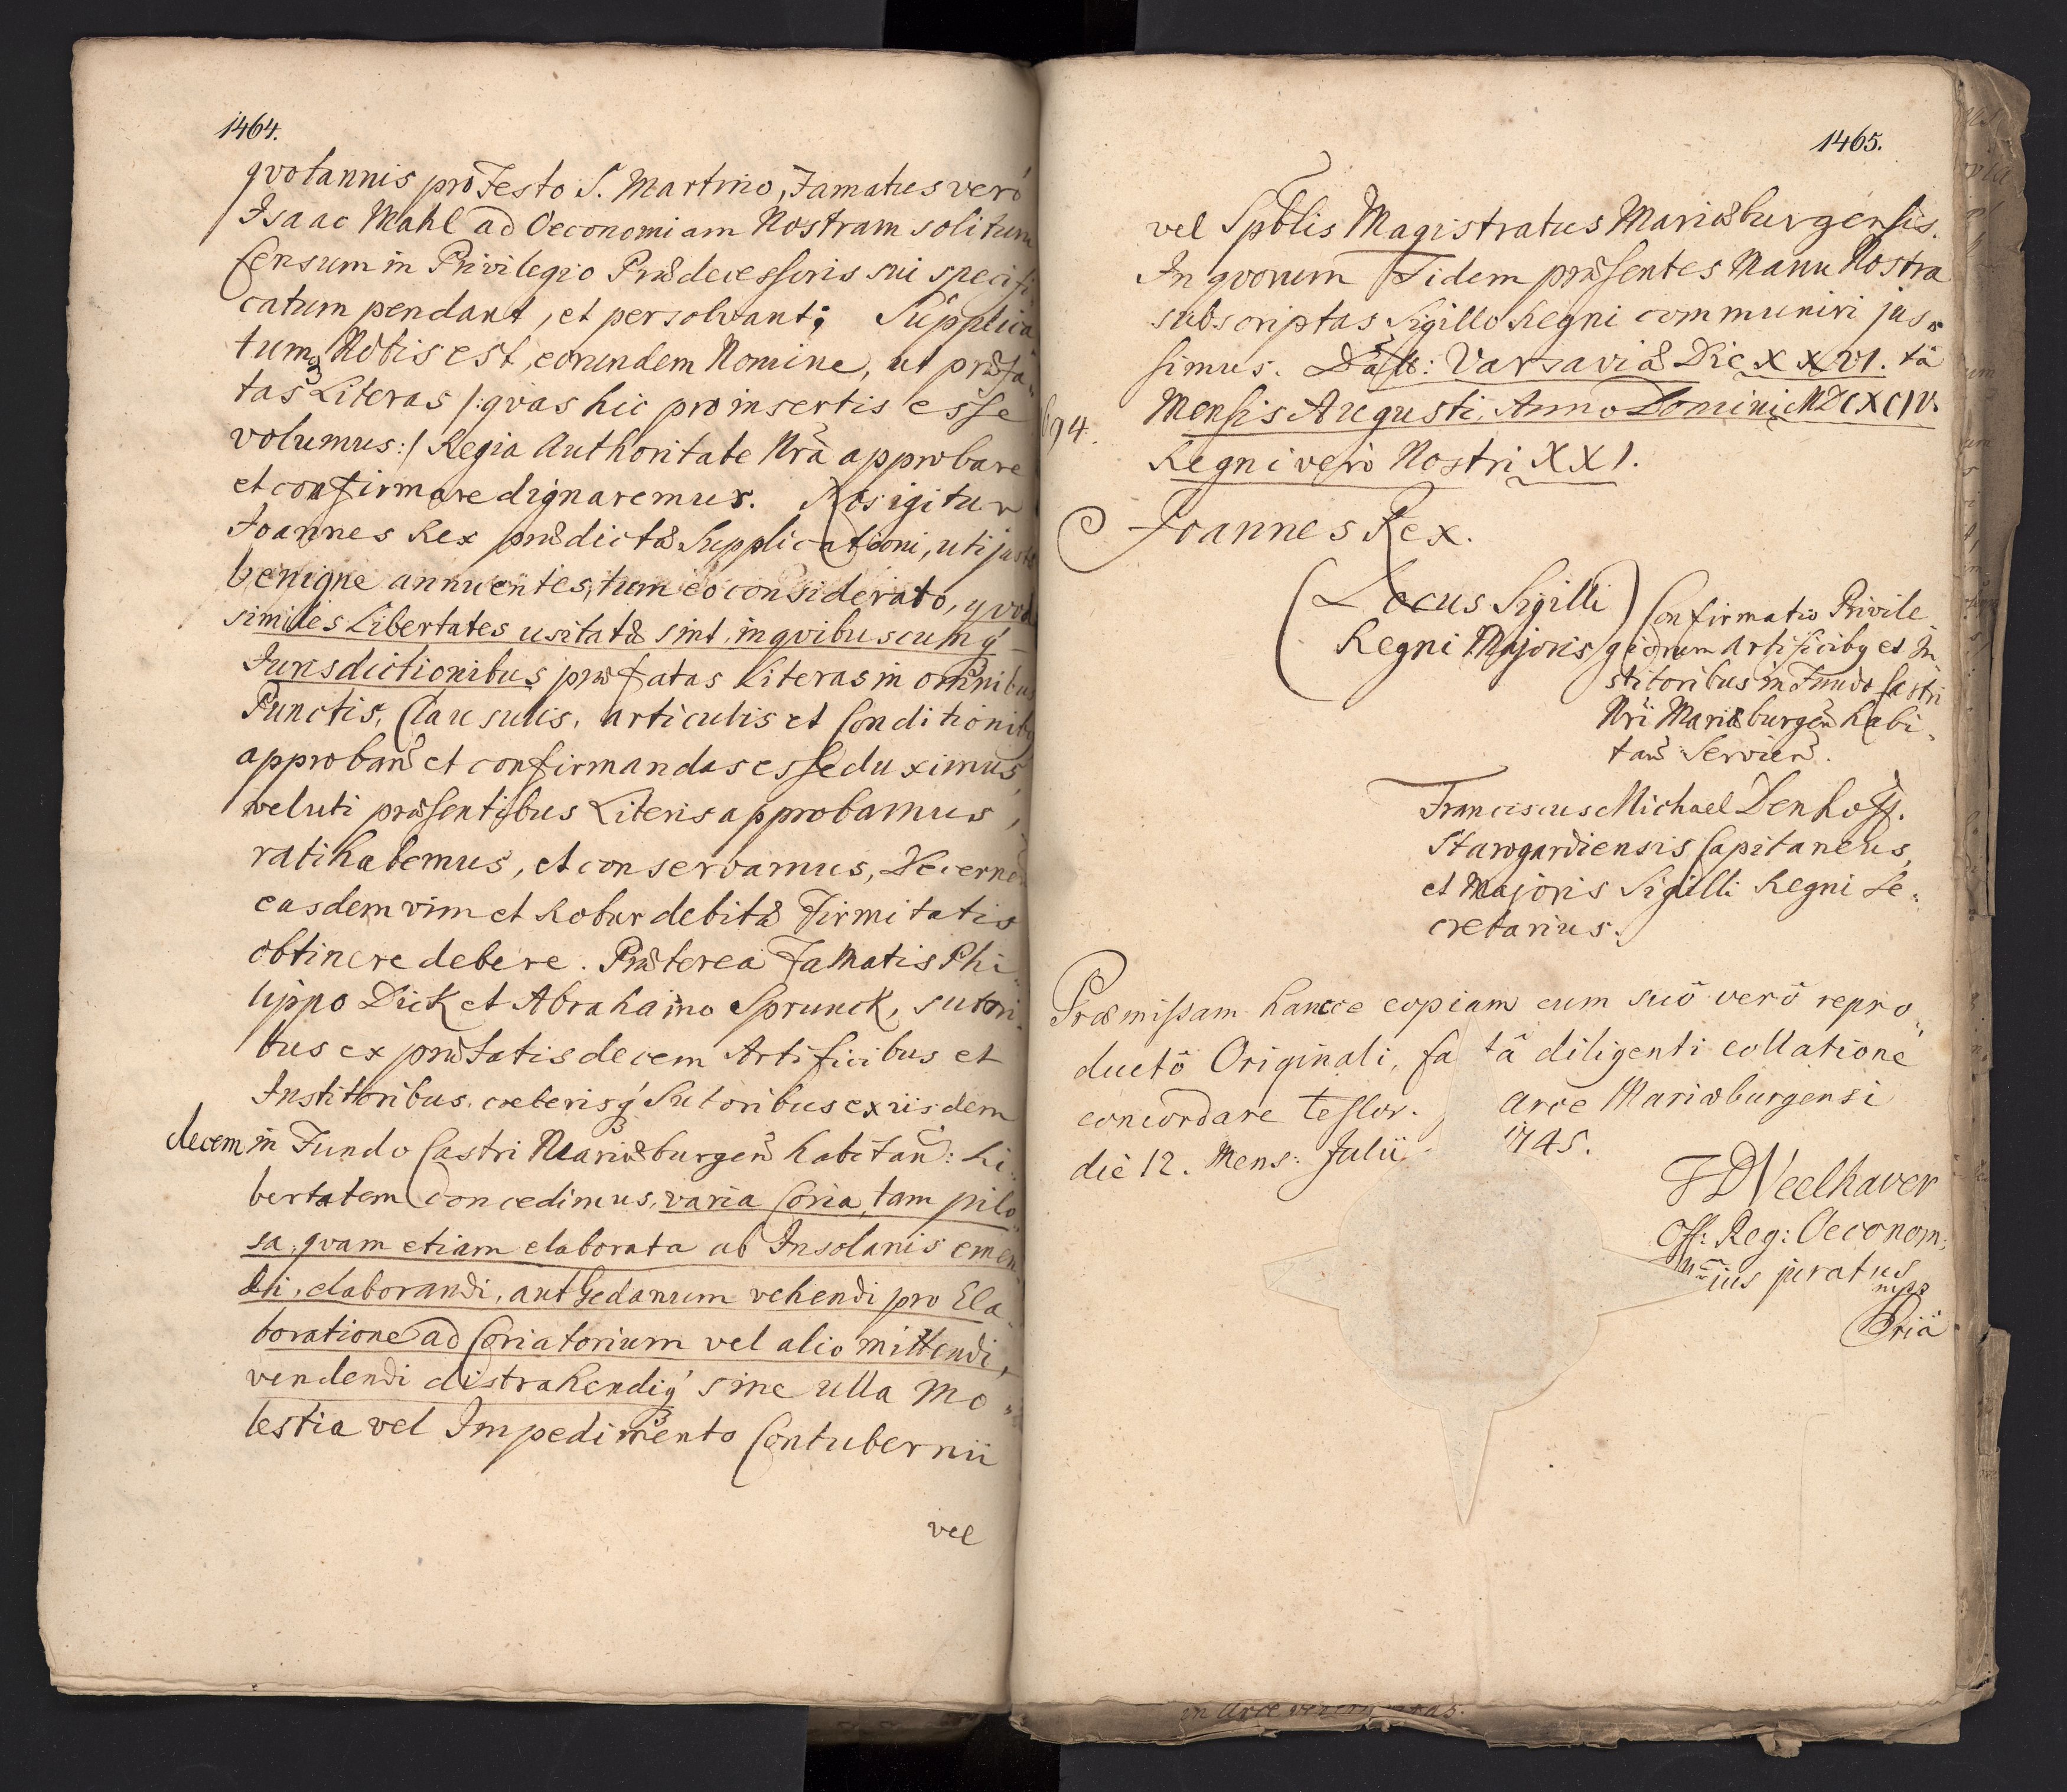 1464.
qvotannis pro Festo S. Martino, Famatus verò
Isaac Mahl ad Oeconomiam Nostram solitum
Censum in Privilegio Prædecessoris sui specifi
catum pendant, et persolvant; Supplica
tumq Nobis est, eorundem Nomine, ut præfa
tas Literas /: qvas hic pro insertis esse
volumus :/ Regia Authoritate Nrâ approbare
et confirmare dignaremur. Nos igitur
Joannes Rex prædictæ Supplicationi, uti justæ
benigne annuentes, tum eo considerato, qvod
similes Libertates usitatæ sint, in qvibuscunq
Jurisdictionibus præfatas Literas in omnibus
Punctis, Clausulis, articulis et Conditionib
approban et confirmandas esse duximus,
veluti præsentibus Literis approbamus,
ratihabemus, et conservamus, Decernen
easdem vim et Robur debitæ Firmitatis
obtinere debere. Præterea Famatis Phi
lippo Dick et Abrahamo Sprunck, sutori
bus ex præfatis decem Artificibus et
Institoribus, cæterisq Sutoribus ex iisdem
decem in Fundo Castri Mariæburgen habitan: Li
bertatem concedimus, varia Coria, tam pilo
sa, qvam etiam elaborata ab Insolanis emen
di, elaborandi, aut Gedanum vehendi pro Ela
boratione ad Coriatorium vel alio mittendi,
vendendi distrahendiq sine ulla Mo
lestia vel Impedimento Contubernii
vel
1465.
vel Spblis Magistratus Mariæburgensis.
In qvorum Fidem præsentes Manu Nostra
subscriptas Sigillo Regni communiri jus
simus. Varsaviæ Die XXVI. tâ
694. Mensis Augusti, Anno Domini MDCXCIV.
Regni verò Nostri XXI.
Joannes Rex.
(Locus Sigilli)
Regni Majoris
Confirmatio Privile
giorum Artificibq et In
stitoribus in Fundo Castri
Nri Mariæburgen habi
tan Servien.
Franciscus Michael Denhoff.
Starogardiensis Capitaneus,
et Majoris Sigilli Regni Se
cretarius.
Præmissam hancce copiam cum suô verô repro
ductô Originali, fa tâ diligenti collatione
concordare testor. arce Mariæburgensi
die 12. Mens: Julii 1745.
Off: Reg: Oeconom:
juratus
mpp